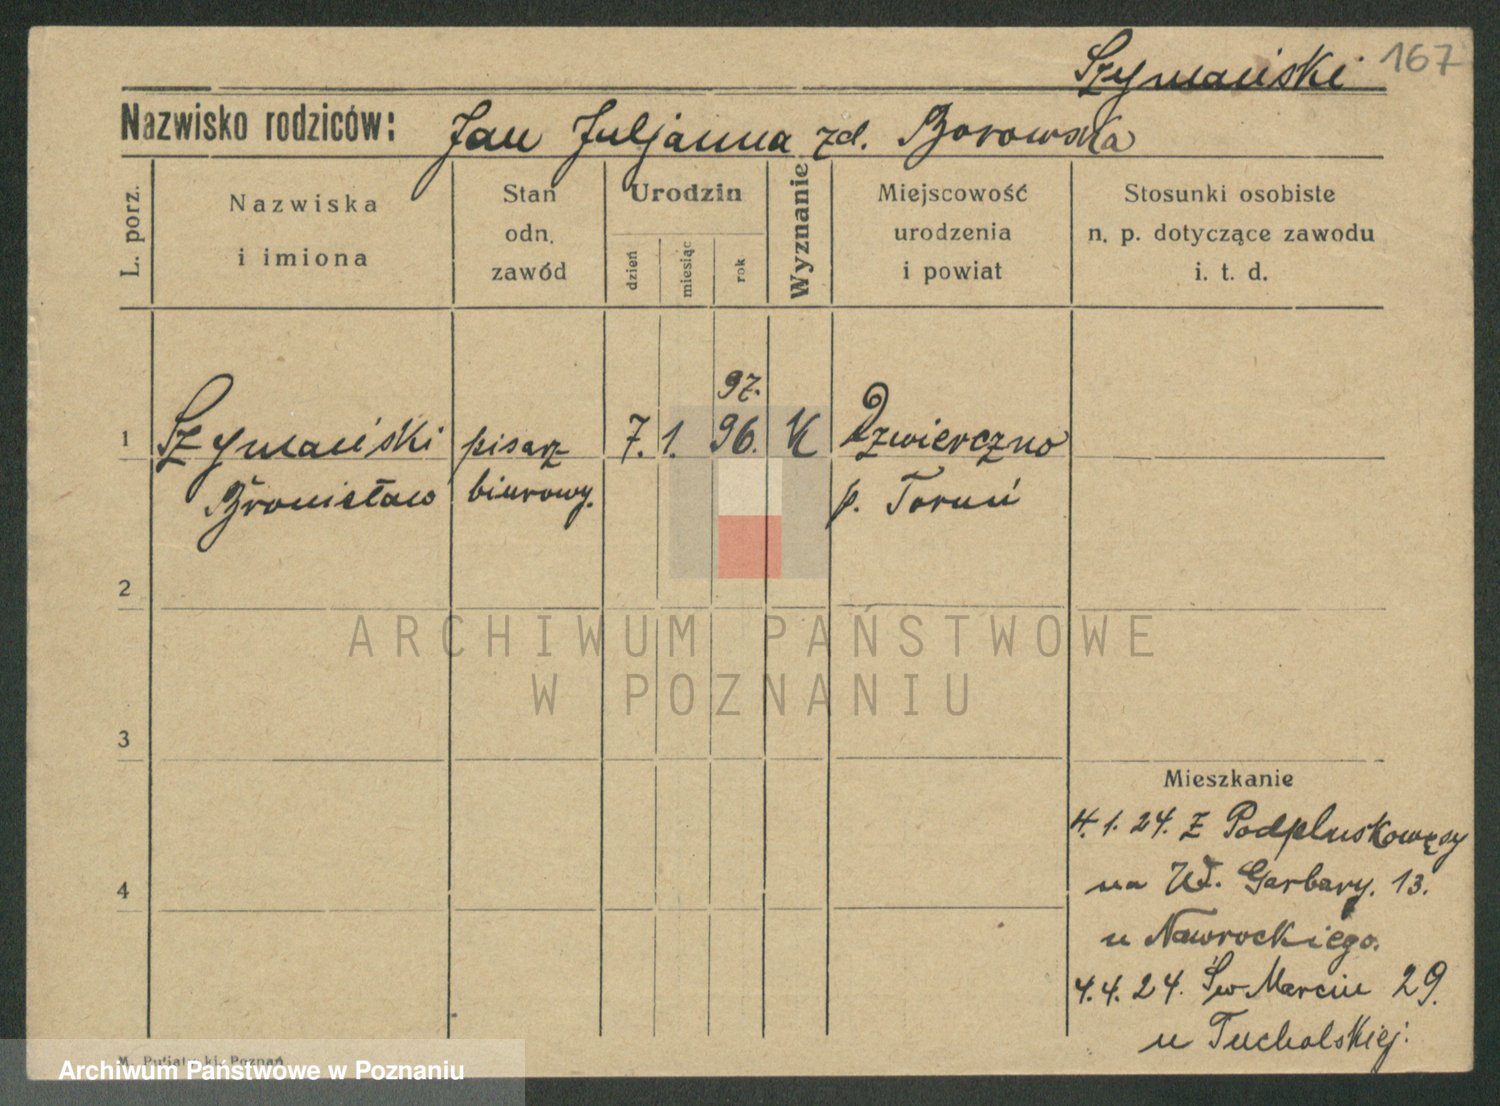 Szymański 167
Nazwisko rodziców: Jan Juljanna zd. Borowska
L. porz.
Nazwiska
i imiona
Stan
odn.
zawód
Urodzin
dzień
miesiąc
rok
Wyznanie
Miejscowość
urodzenia
i powiat
Stosunki osobiste
n. p. dotyczące zawodu
i. t. d.
97.
1 Szymański pisarz 7. 1. 96. K Dzwierczno
Bronisław biurowy. p. Toruń
2
3
4
ARCHIWUM PAŃSTWOWE
W POZNANIU
Mieszkanie
4. 1. 24. z
na W. Garbary. 13.
u Nawrockiego.
4. 4. 24. Św Marcin 29.
u Tucholskiej.
Poznań
Archiwum Państwowe w Poznaniu